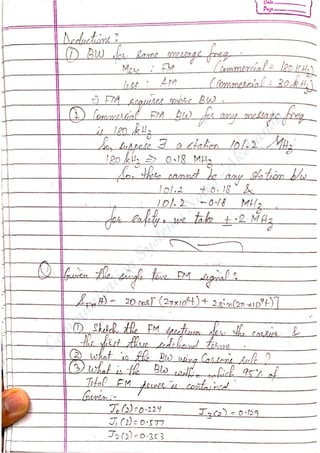 Date
Page
Deductions :
① BW for same message freq.
More : FM (Commercial = 180 KHz)
Less : AM (Commercial = 30 KHz)
⇒ FM requires more BW.
② Commercial FM BW for any message freq
is 180 kHz
So, suppose ∃ a station 101.2 MHz
180 kHz ⇒ 0.18 MHz
So, there cannot be any station b/w
101.2 + 0.18 &
101.2 - 0.18 MHz
for safety, we take ± .2 MHz
Given the single tone FM signal :
S_FM(t) = 20 cos[(2π×10⁸t) + 2 sin(2π×10⁴t)]
① Sketch the FM spectrum for the carrier &
the first three sideband terms.
② What is the BW using Carson's rule ?
③ What is the BW within which 95% of
Total FM power is contained
Given :-
J₀(2) = 0.224 J₃(2) = 0.129
J₁(2) = 0.577
J₂(2) = 0.353